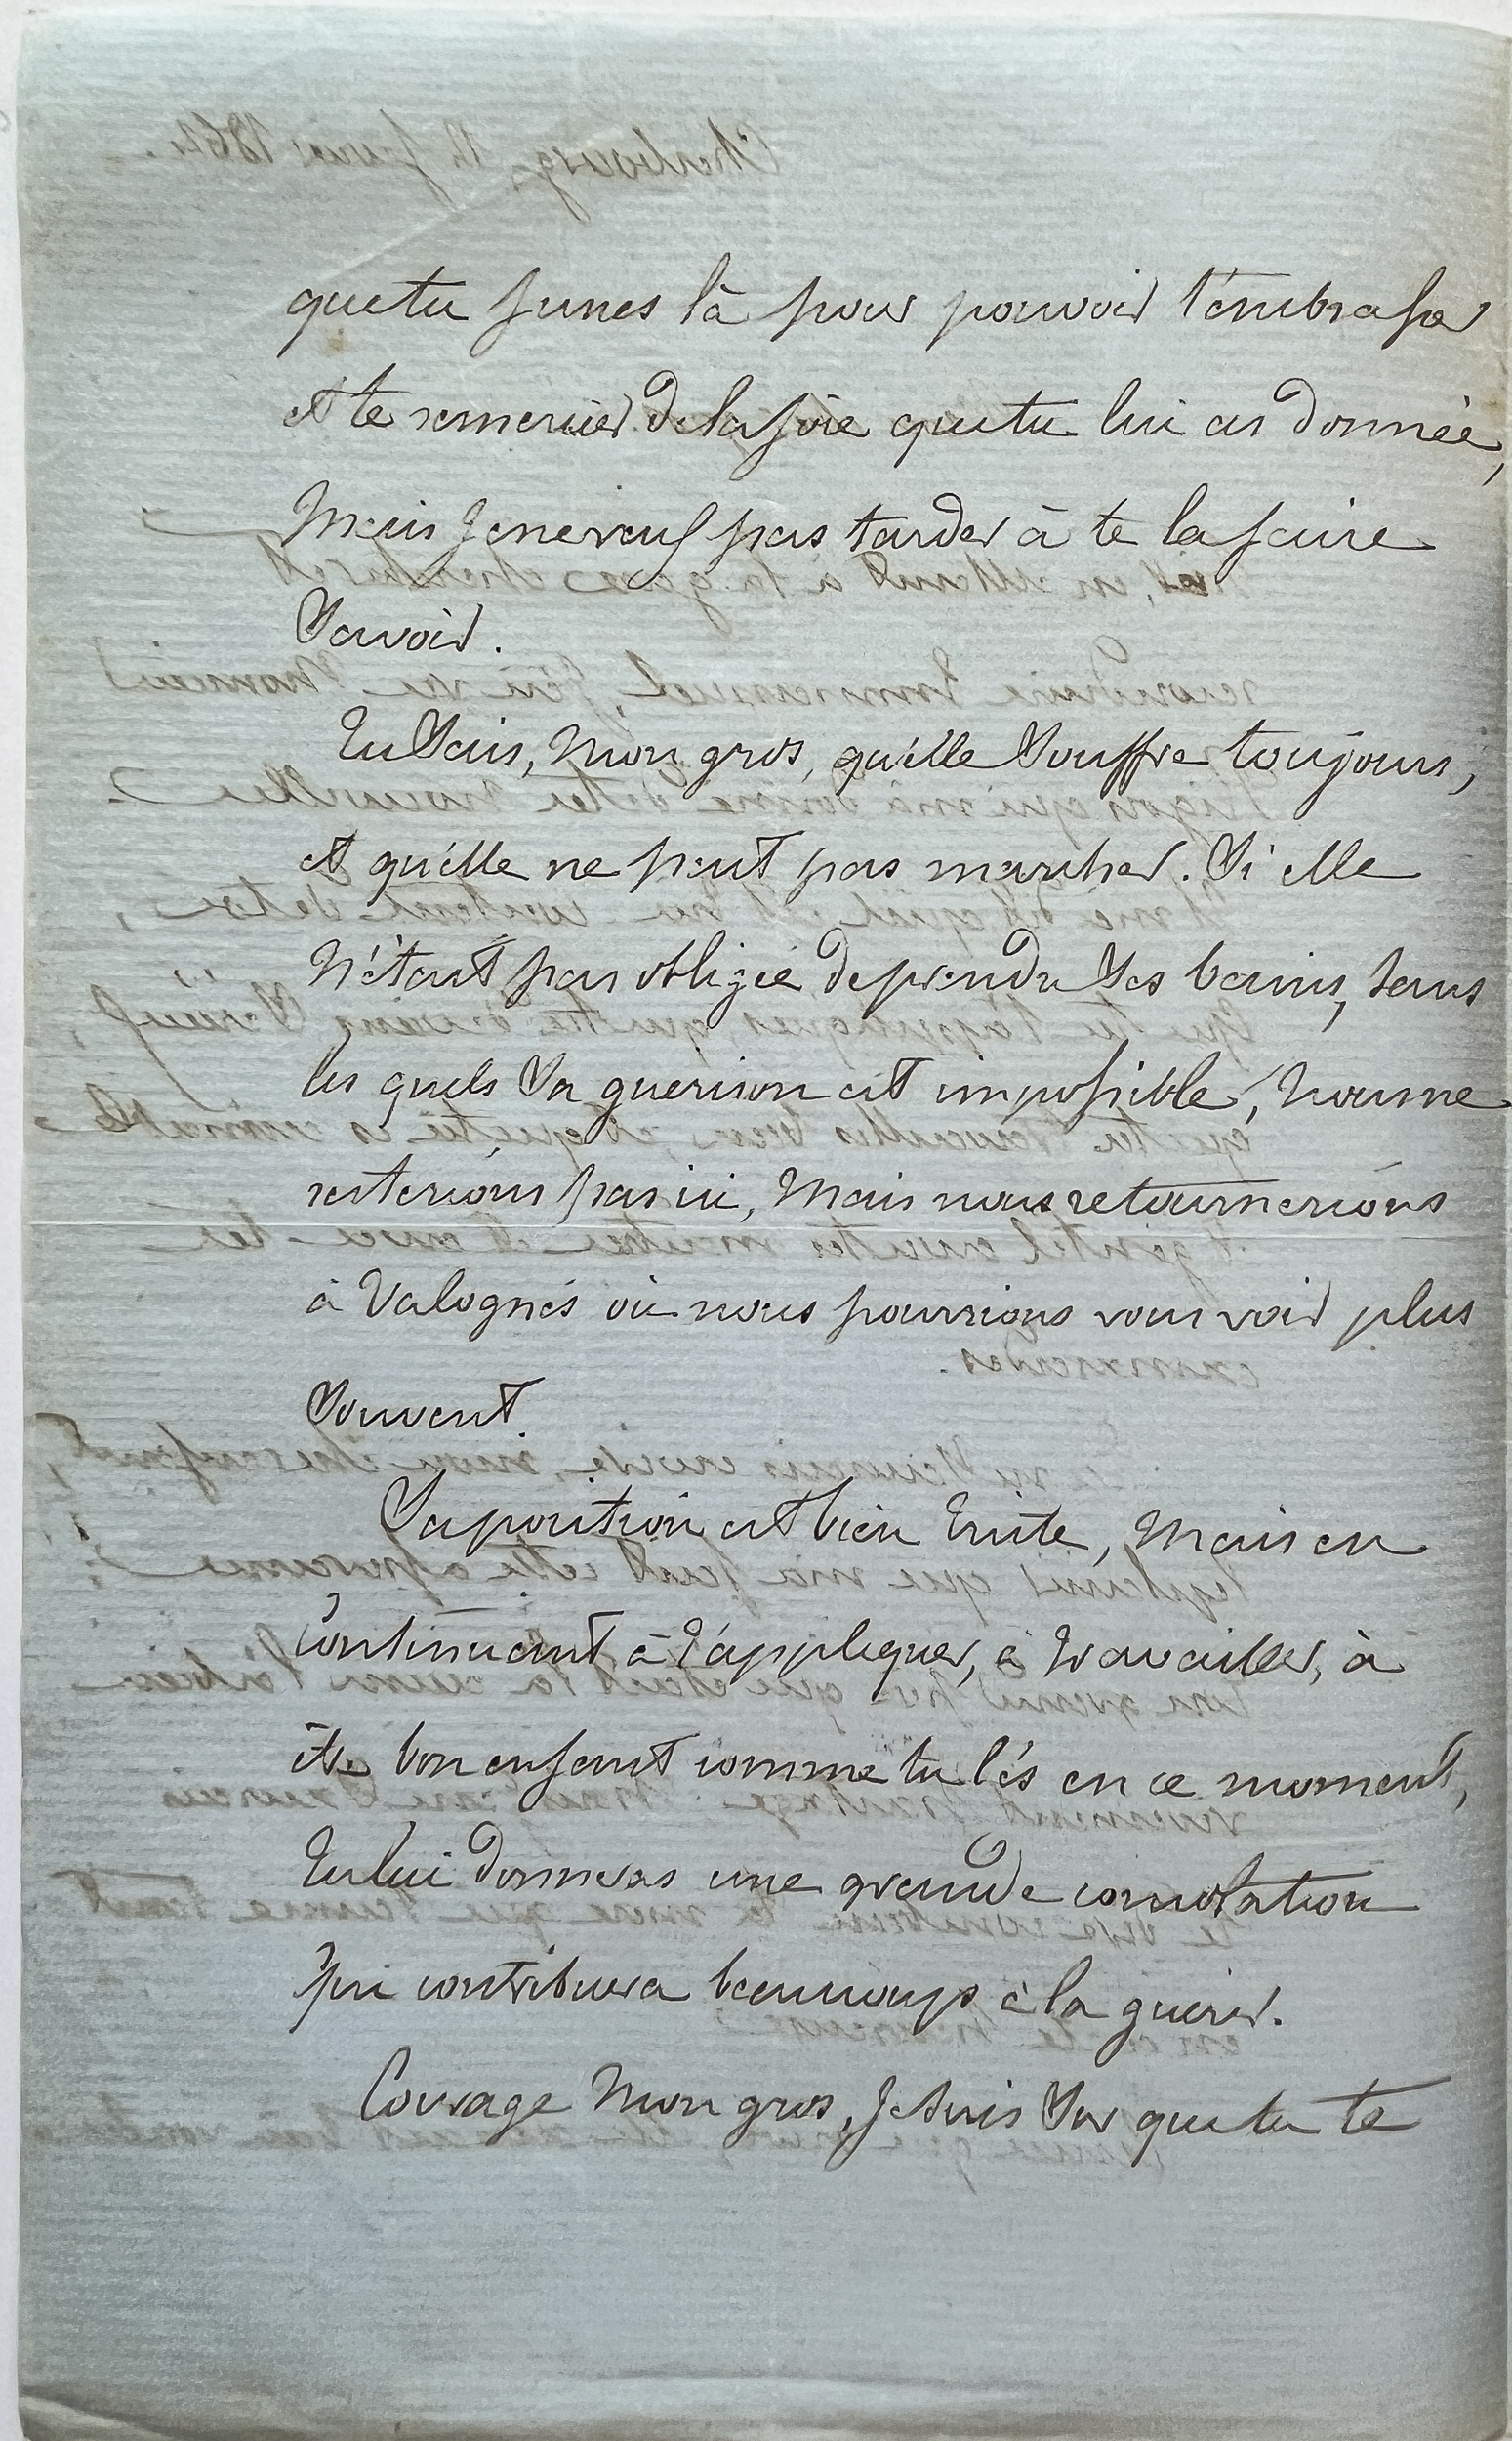 que tu fusses là pour pouvoir t'embrasser
et te remercier de la joie que tu lui as donnée,
Mais Je ne veux pas tarder à te la faire
Savoir.
Tu Sais, Mon gros, qu'elle Souffre toujours,
et qu'elle ne peut pas marcher. Si elle
N'était pas obligée de prendre Ses bains, Sans
les quels Sa guérison est impossible, Nous ne
resterions pas ici, Mais nous retournerions
à Valognes où nous pourrions vous voir plus
Souvent.
Sa position est bien triste, Mais en
Continuant à t'appliquer, à travailler, à
être bon enfant comme tu l'és en ce moment,
Tu lui donneras une grande consolation
qui contribuera beaucoup à la guérir.
Courage Mon gros, Je Suis Sur que tu te